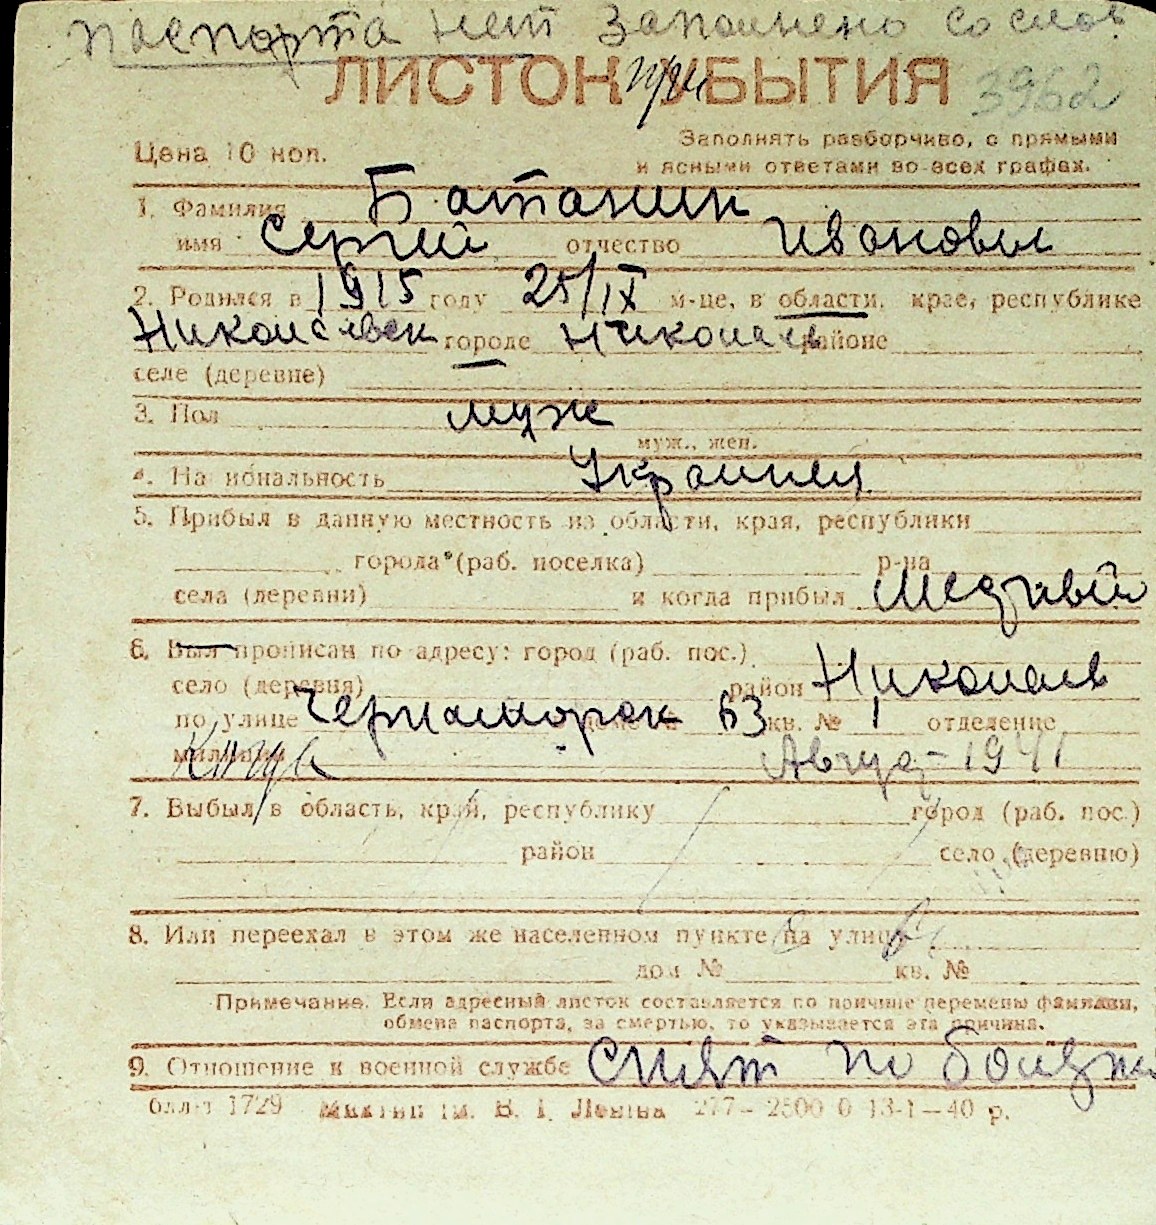 паспорта нет заполнено со слов
ЛИСТОК при УБЫТИЯ 3962
Цена 10 коп.
Заполнять разборчиво, с прямыми
и ясными ответами во всех графах.
1. Фамилия Батанин
имя Сергий отчество Иванович
2. Родился в 1915 году 25/IX м-це, в области, крае, республике
Николаевск городе Николаев районе
селе (деревне)
3. Пол муж
муж., жен.
4. Национальность Украинец
5. Прибыл в данную местность из области, края, республики
города (раб. поселка) р-на
села (деревни) и когда прибыл
6. Был прописан по адресу: город (раб. пос.)
село (деревня) район Николаев
по улице Черноморск 63 кв. № 1 отделение
милиции Август 1941
7. Выбыл в область, край, республику город (раб. пос.)
район село (деревню)
8. Или переехал в этом же населенном пункте на улицу
дом № кв. №
Примечание. Если адресный листок составляется по причине перемены фамилии,
обмена паспорта, за смертью, то указывается эта причина.
9. Отношение к военной службе снят по болезни
1729 ім. В. І. Леніна 277—2500 0 13-I—40 р.